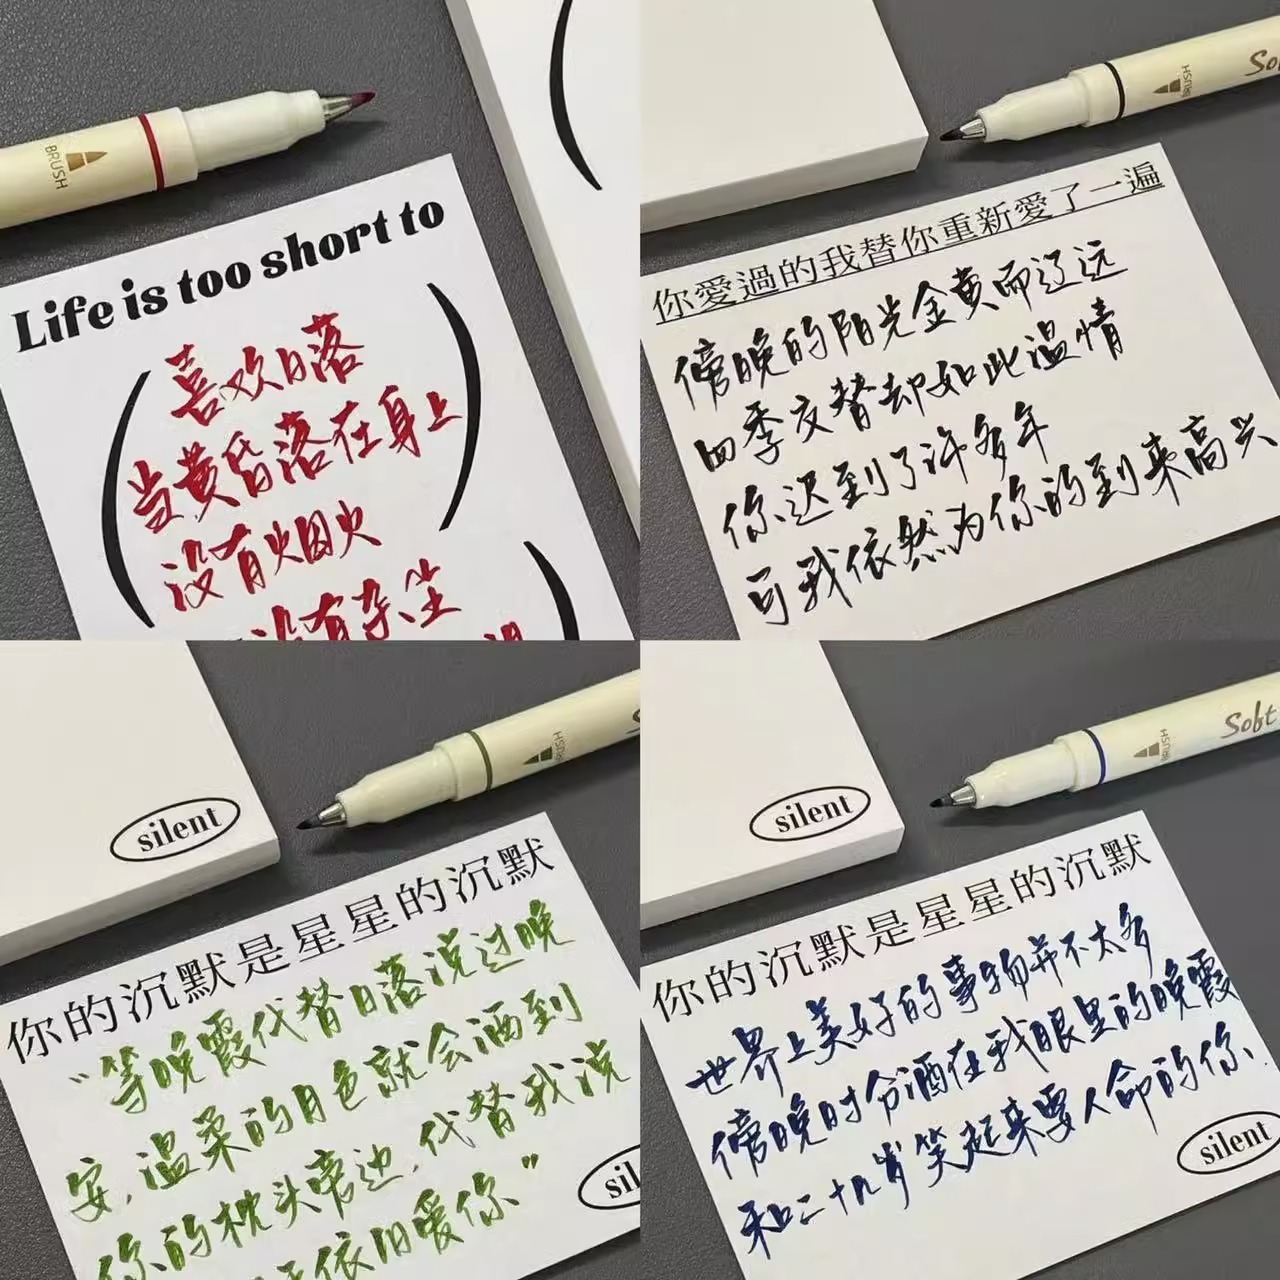 BRUSH
Life is too short to
喜欢日落
当黄昏落在身上
没有烟火
没有杂尘
BRUSH
你愛過的我替你重新愛了一遍
傍晚的阳光金黄而辽远
四季交替却如此温情
你迟到了许多年
可我依然为你的到来高兴
silent
BRUSH
你的沉默是星星的沉默
“等晚霞代替日落说过晚
安,温柔的月色就会洒到
你的枕头旁边,代替我说
依旧爱你”
silent
BRUSH
Soft
你的沉默是星星的沉默
世界上美好的事物并不太多
傍晚时分洒在我眼里的晚霞
和二十几岁笑起来要人命的你、
silent